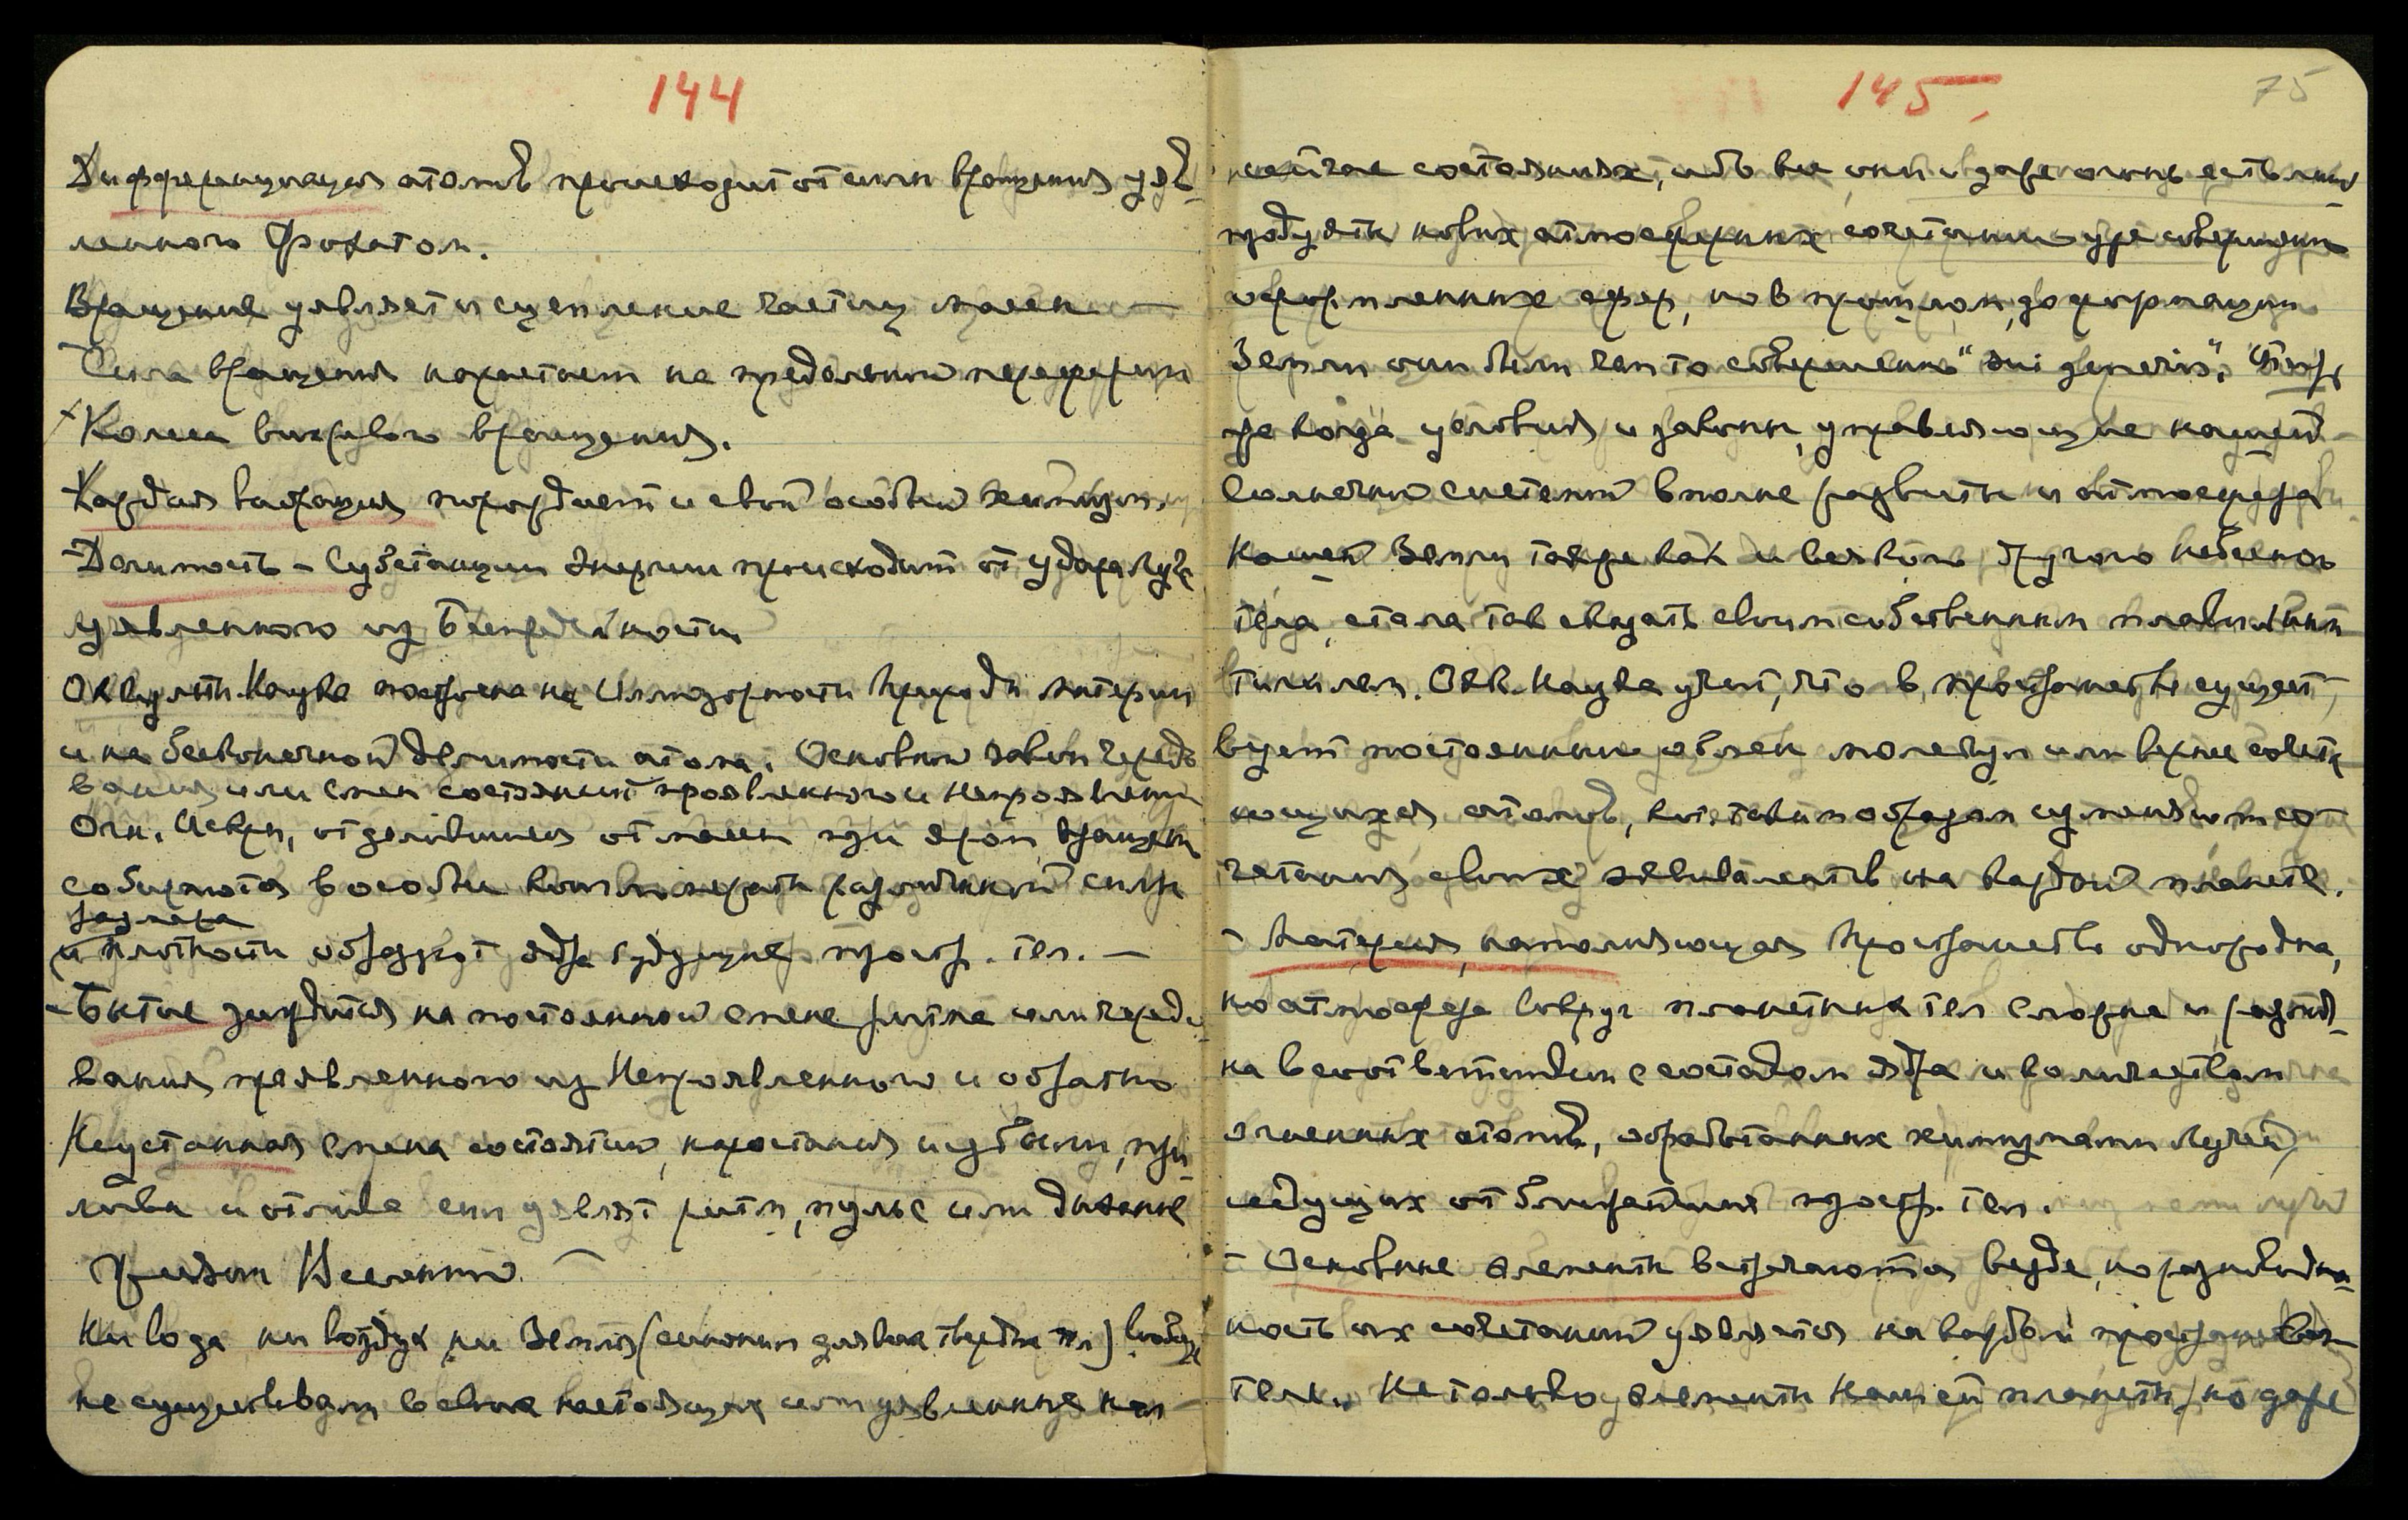 144
Дифференциация атомов происходит от силы вращения уяв-
ленного Фохатом.
Вращение уявляет и сцепление частиц массы —
Сила вращения нарастает на предельной периферии
Кольца вихревого вращения.
Каждая вибрация порождает и свой особый химизм.
- Делимость - Субстанции Энергии происходит от удара Луча
уявленного из Беспредельности
Оккультн. Наука построена на Иллюзорности Природы материи
и на бесконечной делимости атома. Основной закон чередо
вания или смен состояний проявленного и Непроявленн
Огн. Искры, отделившиеся от массы при яром вращен
собираются в особые конгломераты различной силы
размера
и плотности образуют ядра будущих простр. тел. —
- Бытие зиждится на постоянной смене ритма или чередо
вания проявленного из Непроявленного и обратно
Неустанная смена состояний, нарастания и убыли, при-
лива и отлива сил уявляет ритм, пульс или дыхание
Жизни Вселенной. —
Ни вода ни воздух ни Земля (синоним для всех твердых тел)
не существовали в своих настоящих или уявленных нам
145, 75
состояниях, ибо все они и даже огонь есть лишь
продукты новых атмосферных сочетаний уже совершенно
оформленных сфер, но в прошлом, до формации
Земли они были чем то совершенно "sui generis". Теперь
же когда условия и законы, управляющие нашей
Солнечной системой вполне развиты и атмосфера
Нашей Земли также как и всякого другого небесного
тела, стала так сказать своим собственным плавильным
тиглем. Окк. Наука учит, что в пространстве сущест-
вует постоянный обмен молекул или вернее соответ
ющихся атомов, кот. таким образом изменяют со-
четания своих эквивалентов на каждой планете.
- Материя, наполняющая Пространство однородна,
но атмосфера вокруг планетных тел сложна и разнод-
на в соответствии с составом ядра и количеством
огненных атомов, обработанных химизмами Лучей,
идущих от ближайших простр. тел.
- Основные Элементы встречаются везде, но разновидна-
ность их сочетаний уявляется на каждом пространствен-
теле. Не только элементы Нашей планеты, но даже